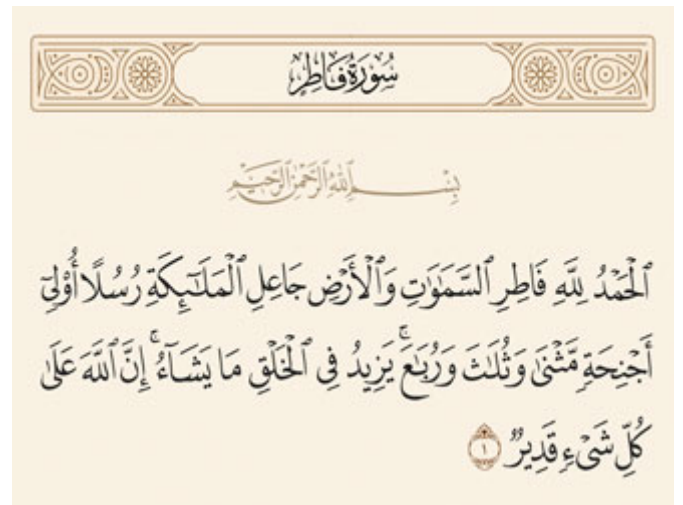 سُورَةُ فَاطِرٍ
بِسْمِ ٱللَّهِ ٱلرَّحْمَٰنِ ٱلرَّحِيمِ
ٱلْحَمْدُ لِلَّهِ فَاطِرِ ٱلسَّمَٰوَٰتِ وَٱلْأَرْضِ جَاعِلِ ٱلْمَلَٰٓئِكَةِ رُسُلًا أُو۟لِىٓ
أَجْنِحَةٍ مَّثْنَىٰ وَثُلَٰثَ وَرُبَٰعَ ۚ يَزِيدُ فِى ٱلْخَلْقِ مَا يَشَآءُ ۚ إِنَّ ٱللَّهَ عَلَىٰ
كُلِّ شَىْءٍ قَدِيرٌ ١